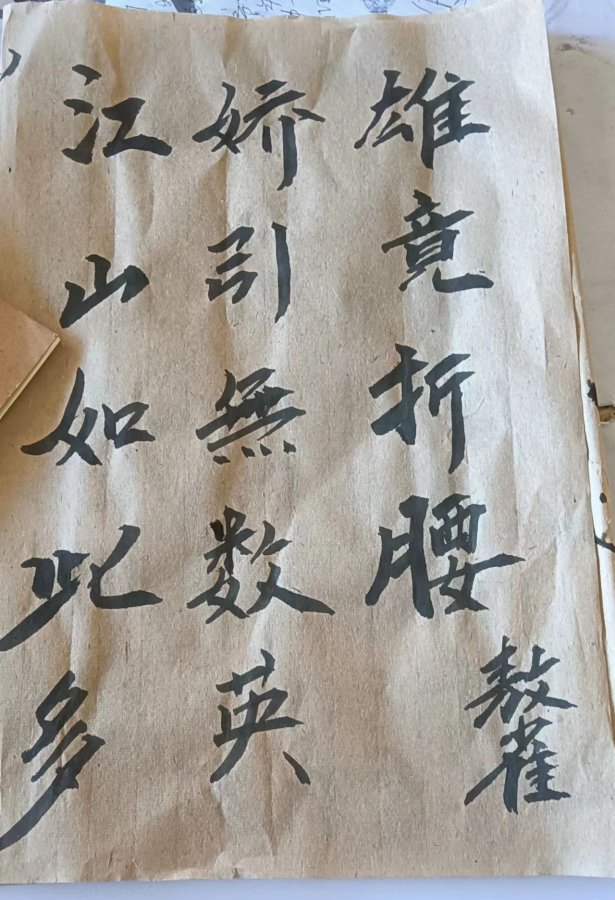 江山如此多
娇引無数英
雄竟折腰
敖雀